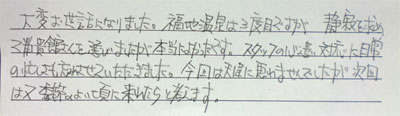 大変お世話になりました。福地温泉は3度目ですが 静寂を求め
て 館さんを選びましたが本当によかったです。スタッフの心遣い対応に日常
の忙しさも忘れさせていただきました。今回は天候に恵れませんでしたが次回
は又季節のよい頃に来れたらと考えます。